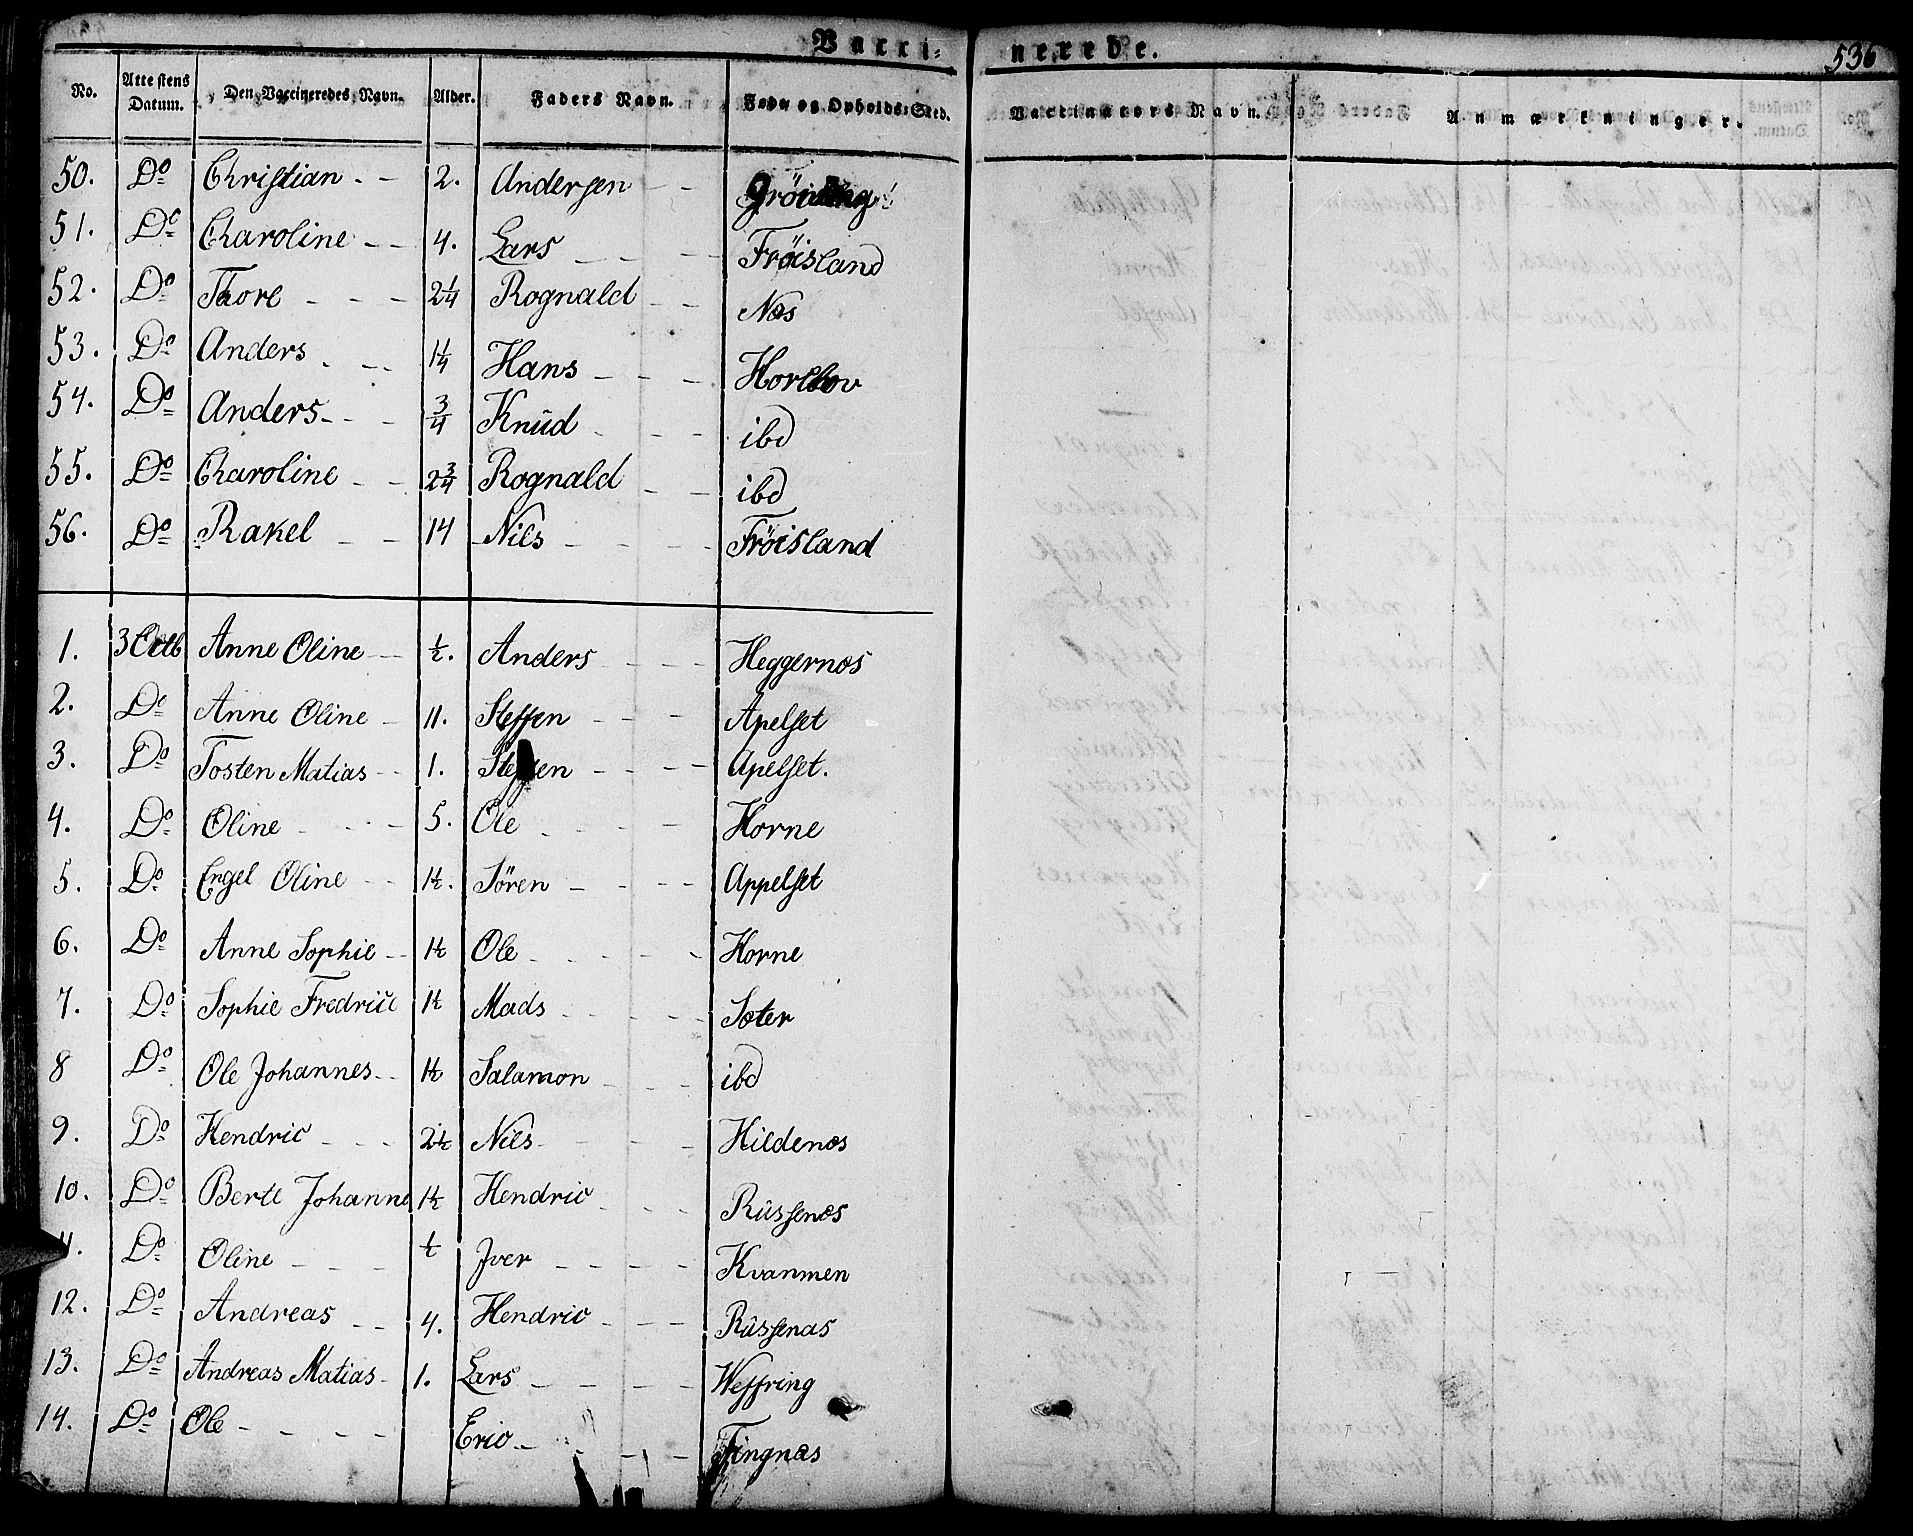 Vacci- nerede.
536
No. Attestens Datum. Den Vaccineredes Navn. Alder. Faders Navn. Føde og Opholds-Sted. Vaccinators Navn. Anmærkninger.
50. Do Christian - - 2. Andersen - -
51. Do Charoline - - 4. Lars - - - Fröisland
52. Do Thore - - - 2¼ Rognald - - Næs
53. Do Anders - - - 1¼ Hans - - -
54. Do Anders - - - ¾ Knüd - - - ibd
55. Do Charoline - - 2¾ Rognald - - ibd
56. Do Rakel - - 14 Nils - - - - Fröisland
1. 3 Octb Anne Oline - - ½. Anders - - - - Heggernæs
2. Do Anne Oline - 11. Steffen - - - Apelset
3. Do Tosten Matias - - 1. Steffen - - - - Apelset.
4. Do Oline - - - - 5. Ole - - - - Horne
5. Do Engel Oline - - 1½. Sören - - - - Appelset
6. Do Anne Sophie - - 1½ Ole - - - - - Horne
7. Do Sophie Fredric 1½ Mads - - - - Sæter
8 Do Ole Johannes - - 1½ Salamon - - - ibd
9. Do Hendric - - - 2½ Nils - - - - Hildenæs
10. Do Berte Johanne 1½ Hendric - - - Rüssenæs
11. Do Oline - - - ½ Jver - - - - Kvammen
12. Do Andreas - - 4. Hendric - - - Rüssenæs
13. Do Andreas Matias - 1. Lars - - - - Weffring
14. Do Ole - - - - Eric - - - - Tingnæs